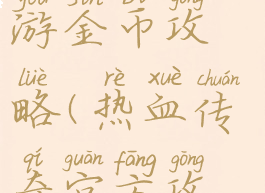 游金币攻
lüè rè xuè chuán
略(热血传
qí guān fāng gōng
奇官方攻